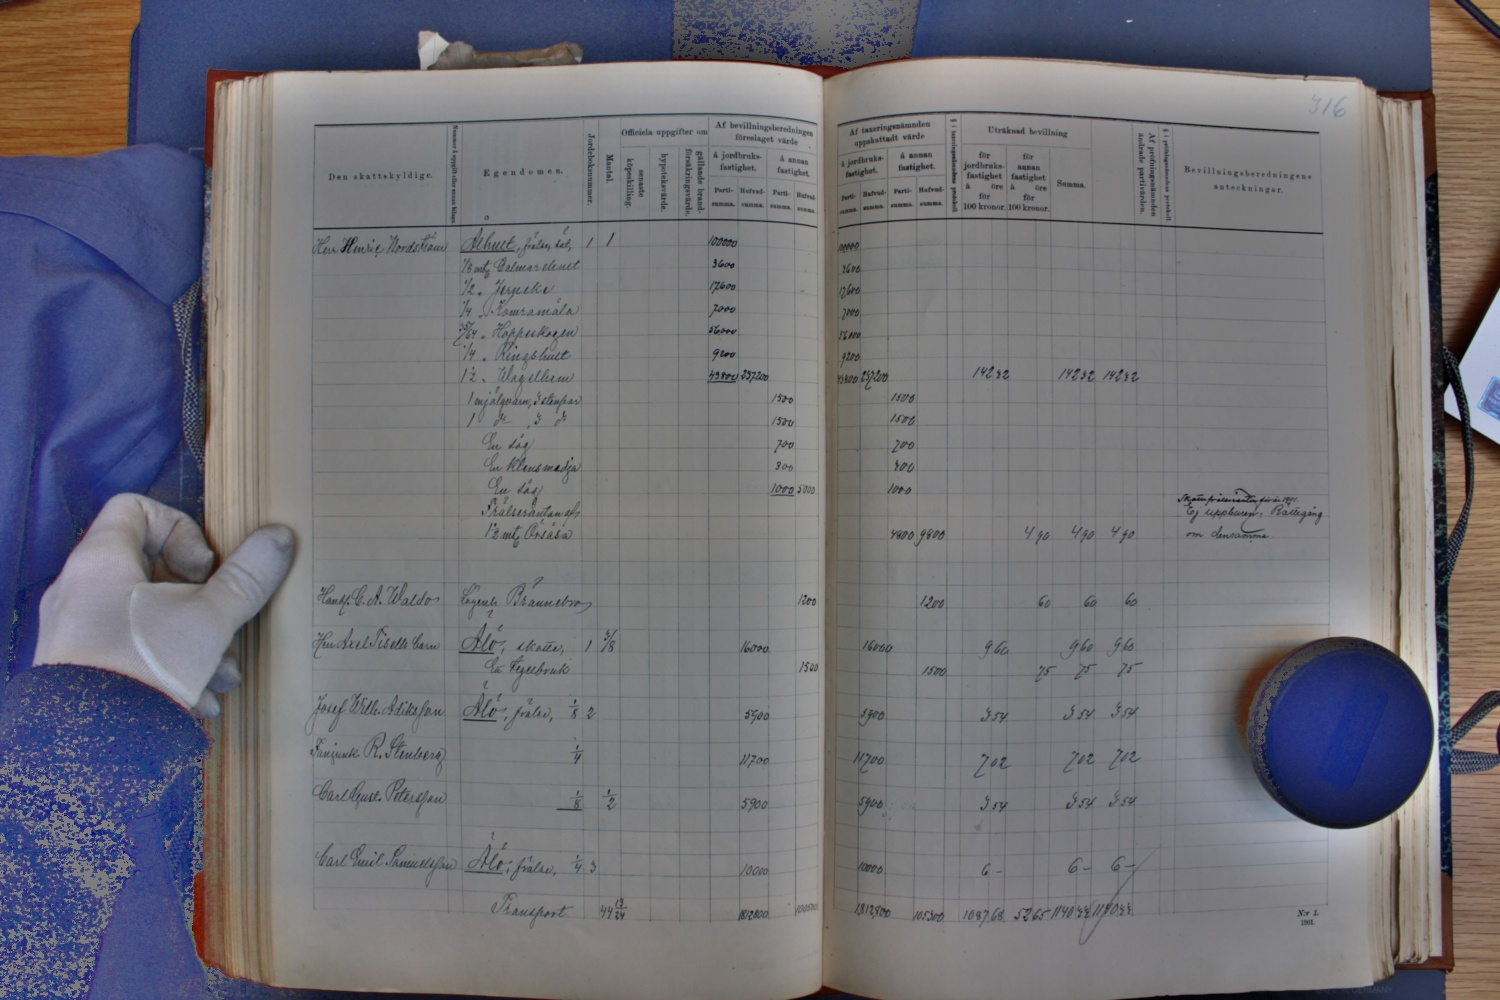 316
Den skattskyldige.
Nummer å uppgift eller annan bilaga.
Egendomen.
Jordeboksnummer.
Mantal.
Officiela uppgifter om
senaste köpeskilling.
hypoteksvärde.
gällande brandförsäkringsvärde.
Af bevillningsberedningen föreslaget värde
å jordbruksfastighet.
å annan fastighet.
Parti-summa.
Hufvud-summa.
Parti-summa.
Hufvud-summa.
Af taxeringsnämnden uppskattadt värde
å jordbruksfastighet.
å annan fastighet.
Parti-summa.
Hufvud-summa.
Parti-summa.
Hufvud-summa.
§ i taxeringsnämndens protokoll.
Uträknad bevillning
för jordbruksfastighet à öre för 100 kronor.
för annan fastighet à öre för 100 kronor.
Summa.
Af pröfningsnämnden ändrade partivärden.
§ i pröfningsnämndens protokoll.
Bevillningsberedningens anteckningar.
Herr Henric Nordström Ålhult, frälse, sät, 1 1 100000 100000
1/8 mtl Calmarehult 3600 3600
1/2 " 17600 17600
1/4 " Komramåla 7000 7000
" Hoppeskogen 56000 56000
1/4 " Ringshult 9200 9200
1/2 " 43800 237200 43800 237200 142 32 142 32 142 32
1 mjölqvarn, 3 stenpar 1500 1500
1 do 3 do 1500 1500
En såg 700 700
En Klensmedja 300 300
En såg 1000 5000 1000
Frälseräntan af
1/2 mtl Örsåsa 4800 9800 4 90 4 90 4 90
Ej uppburen. Rättegång
om densamma.
Handl. C. A. Waldo Lägenh. Brännebro 1200 1200 60 60 60
Herr Axel Fiselli Carn Alö, skatte, 1 3/8 16000 16000 9 60 9 60 9 60
En Tegelbruk 1500 1500 75 75 75
Josef Wilh. Alö, frälse, 1/8 2 5900 5900 3 54 3 54 3 54
Fanjunk. R. Stenberg 1/4 11700 11700 7 02 7 02 7 02
Carl Gust. Petersson 1/8 1/2 5900 5900 3 54 3 54 3 54
Carl Emil Samuelsson Alö, frälse, 1/4 3 10000 10000 6 - 6 - 6 -
Transport 1812800 1812800 105300 1087 68 52 65 1140 33 1140 33
N:r 1.